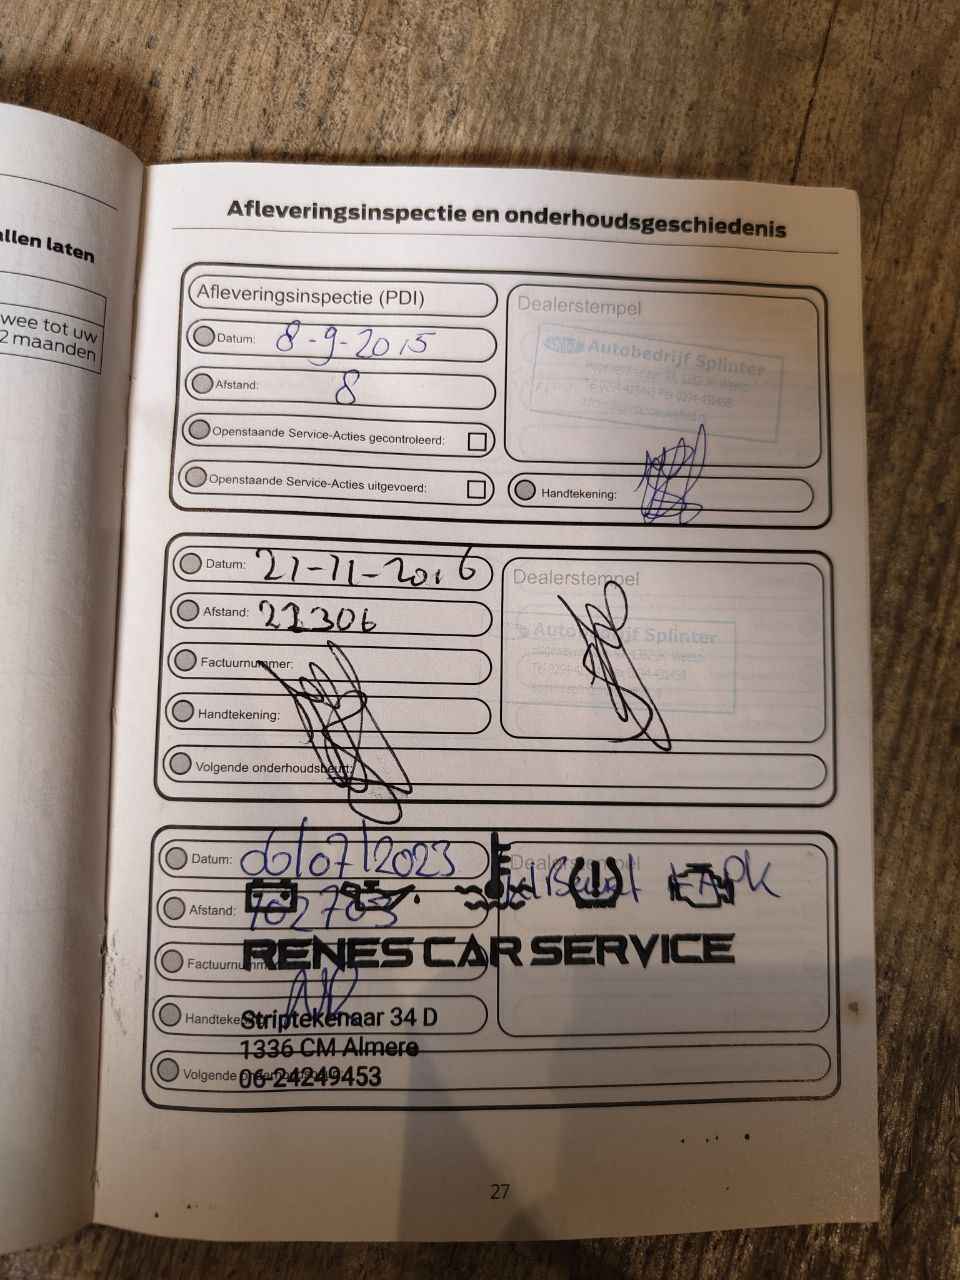 allen laten
wee tot uw
2 maanden
Afleveringsinspectie en onderhoudsgeschiedenis
Afleveringsinspectie (PDI)
Datum: 8-9-2015
Afstand: 8
Openstaande Service-Acties gecontroleerd:
Openstaande Service-Acties uitgevoerd:
Dealerstempel
Autobedrijf Splinter
Handtekening:
Datum: 21-11-2016
Afstand: 22306
Factuurnummer:
Handtekening:
Volgende onderhoudsbeurt:
Dealerstempel
Autobedrijf Splinter
Datum: 06/07/2023
Afstand: 102703
Dealerstempel
RENES CAR SERVICE
Striptekenaar 34 D
1336 CM Almere
06-24249453
27